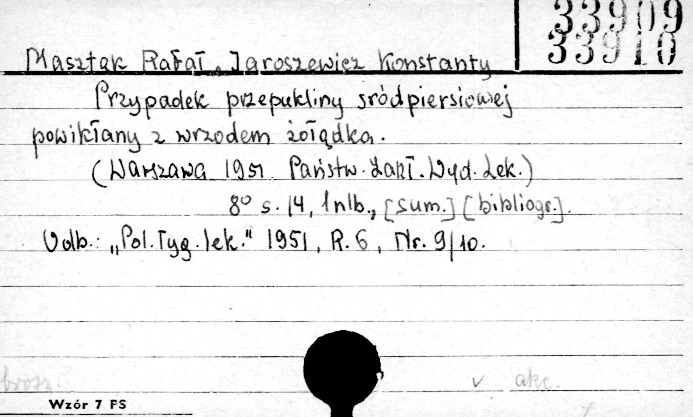 33909
33910
Masztak Rafał, Jaroszewicz Konstanty
Przypadek przepukliny śródpiersiowej
powikłany z wrzodem żołądka.
(Warszawa 1951 Państw. Zakł. Wyd. Lek.)
8° s. 14, 1 nlb., [sum.] [bibliogr.].
Odb.: „Pol. Tyg. lek." 1951, R. 6, Nr. 9/10.
brosz.
v akc.
Wzór 7 FS